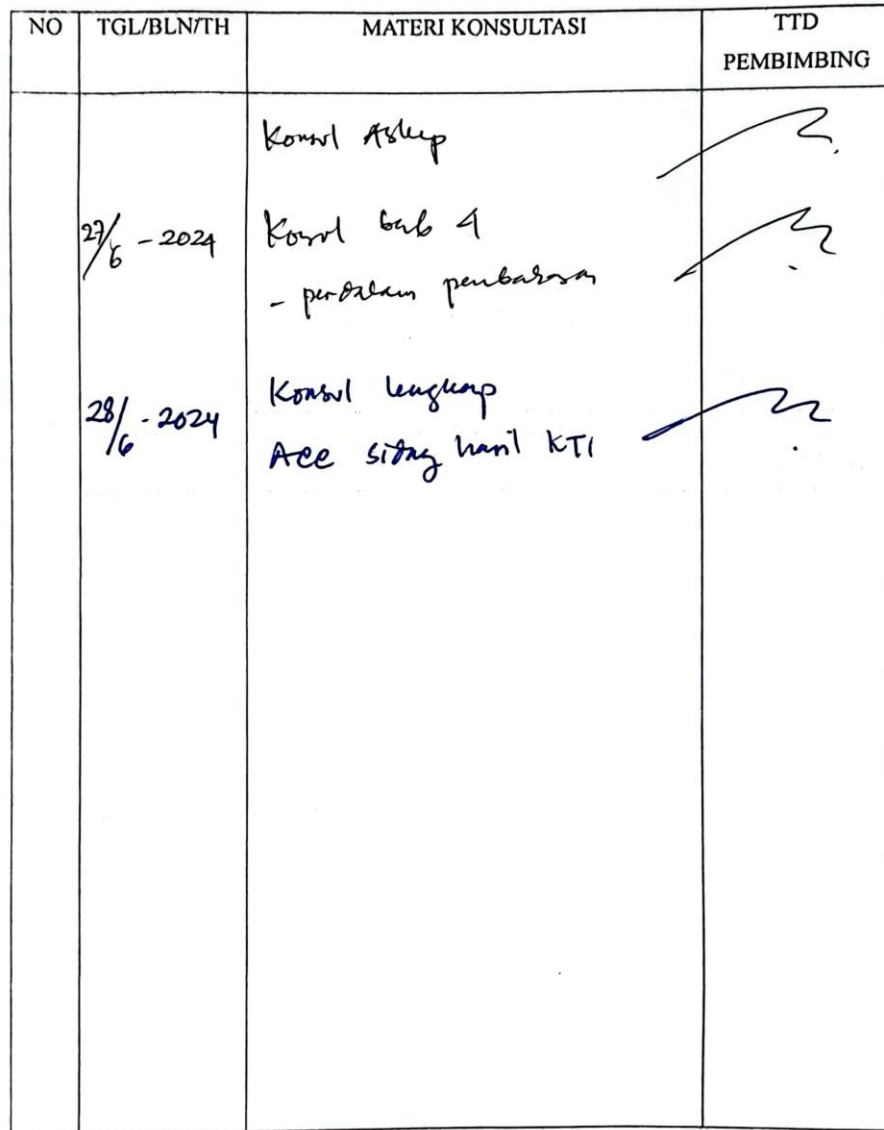 NO TGL/BLN/TH MATERI KONSULTASI TTD
PEMBIMBING
Konsul Askep
27/6 - 2024 Konsul bab 4
- perdalam pembahasan
28/6 - 2024 Konsul lengkap
Acc sidang hasil KTI